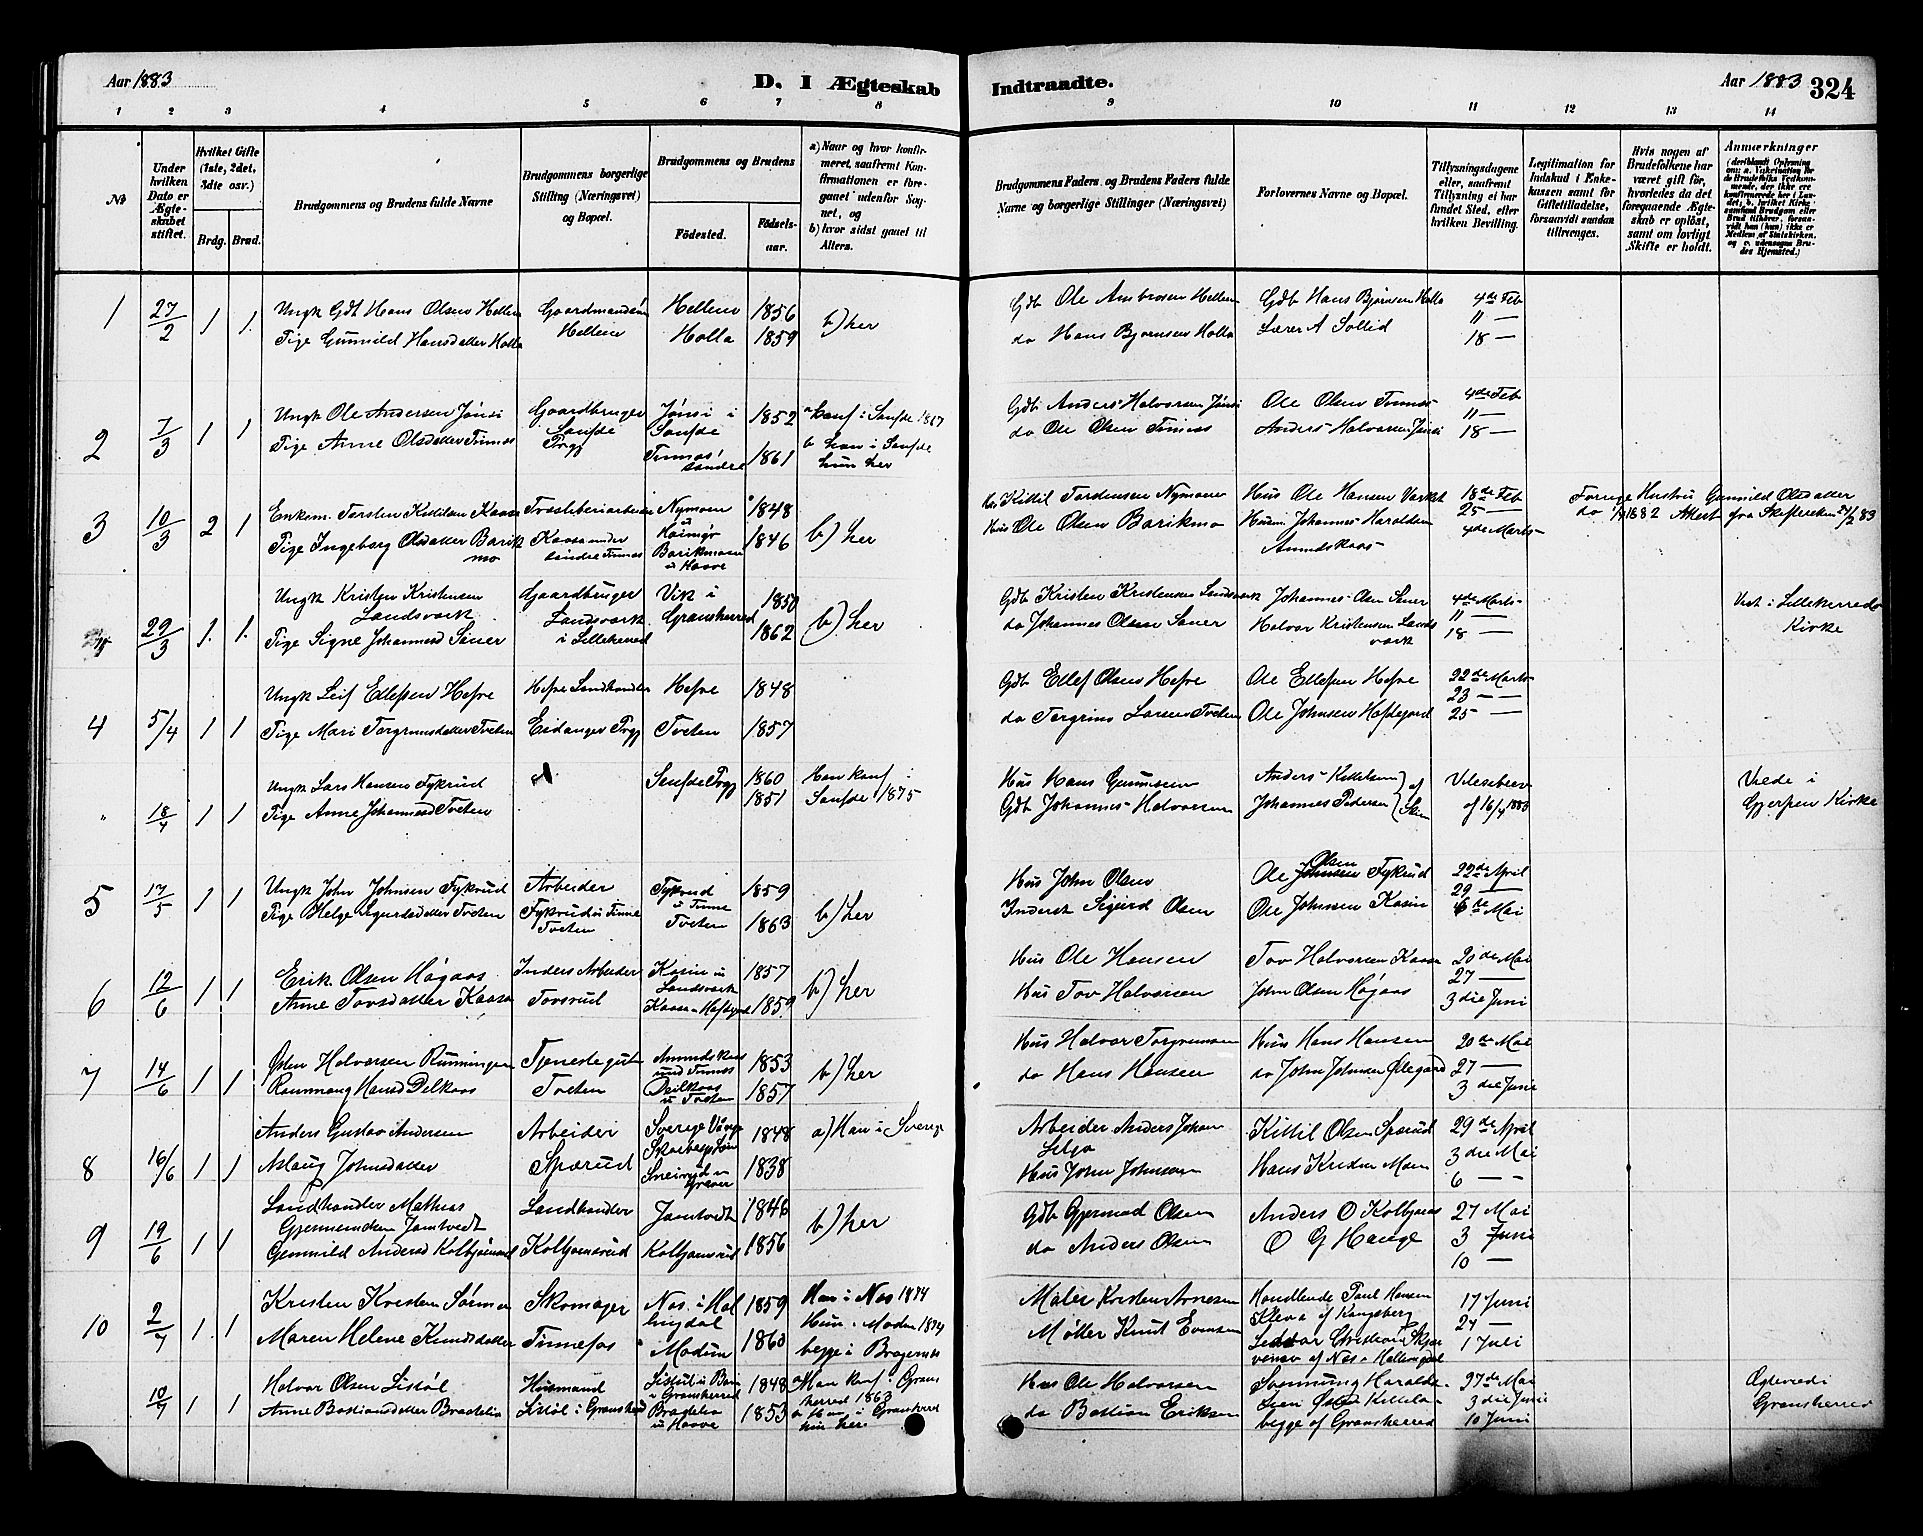 Aar 1883
D. I Ægteskab Indtraadte.
Aar 1883 324
1 2 3 4 5 6 7 8 9 10 11 12 13 14
No
Under hvilken Dato er Ægteskabet stiftet.
Hvilket Gifte (1ste, 2det, 3die osv.)
Brdg. Brud.
Brudgommens og Brudens fulde Navne
Brudgommens borgerlige Stilling (Næringsvei) og Bopæl.
Brudgommens og Brudens
Födested.
Födselsaar.
a) Naar og hvor konfirmeret, saafremt Konfirmationen er foregaaet udenfor Sognet, og
b) hvor sidst gaaet til Alters.
Brudgommens Faders og Brudens Faders fulde Navne og borgerlige Stillinger (Næringsvei)
Forlovernes Navne og Bopæl.
Tillysningsdagene eller, saafremt Tillysning ei har fundet Sted, efter hvilken Bevilling.
Legitimation for Indskud i Enkekassen samt for Giftetilladelse, forsaavidt saadan tiltrænges.
Hvis nogen af Brudefolkene har været gift för, hvorledes da det foregaaende Ægteskab er oplöst, samt om lovligt Skifte er holdt.
Anmærkninger
1 27/2 1 1
Ungk Gdt Hans Olsen Hellen
Tige Gunnild Hansdatter Holla
Gaardmandssön Hellene
Hellene 1856
Holla 1859
b) her
Gdb Ole Ambrosen Hellen
do Hans Bjørnsen Holla
Gdb Hans Bjørnsen Holla
Lærer A Sollid
4de Feb
11 —
18 —
2 7/3 1 1
Ungk Ole Andersen Jønsi
Tige Anne Olsdatter Tinnæs
Gaardbruger Saufde Prgj
Jønsi i Saufde 1852
Tinnæs søndre 1861
a konf i Saufde 1867
b han i Saufde
hun her
Gdb Anders Halvorsen Jønsi
do Ole Olsen Tinnæs
Ole Olsen Tinnæs
Anders Halvorsen Jønsi
4de Feb
11 —
18 —
3 10/3 2 1
Enkem. Torsten Kittilsen Kaasa
Tige Ingeborg Olsdatter Barikmo
Træsliberiarbeider
Kaasa under søndre Tinnæs
Nymoen 1848
Barikmoen u Haave 1846
b) her
Hus Kittil Torstensen Nymoen
Hus Ole Olsen Barikmo
Hus Ole Hansen
Husm Johannes Haraldsen
Amundskaas
18de Feb
25 —
4de Marts
Forrige Hustru Gunnild Olsdatter
do 1882 Attest fra Skifteretten 24/2 83
29/3 1. 1.
Ungk Kristen Kristensen Landsvark
Tige Signe Johannesd Saner
Gaardbruger Landsvark i Lilleherred
Vik i Gransherred 1850
1862
b) her
Gdb Kristen Kristensen Landsvark
do Johannes Olsen Saner
Johannes Olsen Saner
Halvor Kristensen Landsvark
4de Marts
11 —
18 —
Viet i Lilleherreds Kirke
4 5/4 1 1
Ungk Leif Ellefsen Hefre
Tige Mari Torgrimsdatter Tveten
Hefre Landhandler
Eidanger Prgj
Hefre 1848
Tveten 1857
Gdb Ellef Olsen Hefre
do Torgrim Larsen Tveten
Ole Ellefsen Hefre
Ole Johnsen Hafdegard
22de Marts
23 —
25 —
" 18/4 1 1
Ungk Lars Hansen Fykerud
Tige Anne Johannesd Tveten
Saufde Prgj 1860
1851
Han konf i Saufde 1875
Hus Hans Gunnesen
Gdb Johannes Halvorsen
Anders Kittelsen
Johannes Pedersen } af Skien
Vielsesbrev
af 16/4 1883
Viede i Gjerpen Kirke
5 17/5 1 1
Ungk John Johnsen Fykerud
Tige Helge Sigurdsdatter Tveten
Arbeider
Fykerud u Tinne
Tveten
Fykerud u Tinne 1859
Tveten 1863
b) her
Hus John Olsen
Inderst Sigurd Olsen
Ole Olsen Fykerud
Ole Johnsen Kasin
22de April
29 —
6te Mai
6 12/6 1 1
Erik Olsen Høgaas
Anne Tovsdatter Kaasa
Inders Arbeider
Tovsrud
Kasin u Landsvark 1857
Kaasa u Hafdegard 1859
b) her
Hus Ole Hansen
Hus Tov Halvorsen
Tov Halvorsen Kaasa
John Olsen Høgaas
20de Mai
27 —
3die Juni
7 14/6 1 1
Østen Halvorsen Runningen
Rannaug Hansd Pelkaas
Tjenestegut
Tveten
Amundskaas und Tinnæs 1853
Pælkaas u Tveten 1857
b) her
Hus Halvor Torgrimsen
do Hans Hansen
Hus Hans Hansen
do John Johnsen Ødegard
20de Mai
27 —
3die Juni
8 16/6 1 1
Anders Gustav Andersen
Aslaug Johnsdatter
Arbeider
Spærud
Sverige 1848
1838
a) Han i Sverige
Arbeider Anders Johan Silja
Hus John Johnsen
Kittil Olsen Spærud
Hans Kristen Moen
29de April
3die Mai
6 — —
9 19/6 1 1
Landhandler Mathias Gjermundsen Jamtvedt
Gunnild Andersd Kolbjørnsrud
Landhandler
Kolbjørnsrud
Jamtvedt 1846
Kolbjørnsrud 1856
b) her
Gdb Gjermund Olsen
do Anders Olsen
Anders O Kolbjørns
O G Hauge
27 Mai
3 Juni
10 —
10 2/7 1. 1
Kristen Kristen Sørmoen
Maren Helene Knudsdatter
Skomager
Tinnefos
Næs i Hallingdal 1859
Modum 1860
Han i Næs 1874
Hun i Modum 1874
begge i Bragernæs
Maler Kristen Arnesen
Møller Knut Evensen
Handlende Paul Hansen
Kleva af Kongsberg
af Næs i Hallingdal
17 Juni
24 —
1 Juli
10/7 1 1
Halvor Olsen Listøl
Anne Bastiansdatter Bradalia
Husmand
Listøl i Gransherred
Listøl i Gransherred 1848
Bradalia u Haave 1853
a Han konf i Gransherred 1863
b Han i Gransherred
hun her
Hus Ole Halvorsen
do Bastian Eriksen
Svennung Haralds
Østen Kittilsen
begge af Gransherred
27de Mai
3die Juni
10 Juni
Egteviedi Gransherred